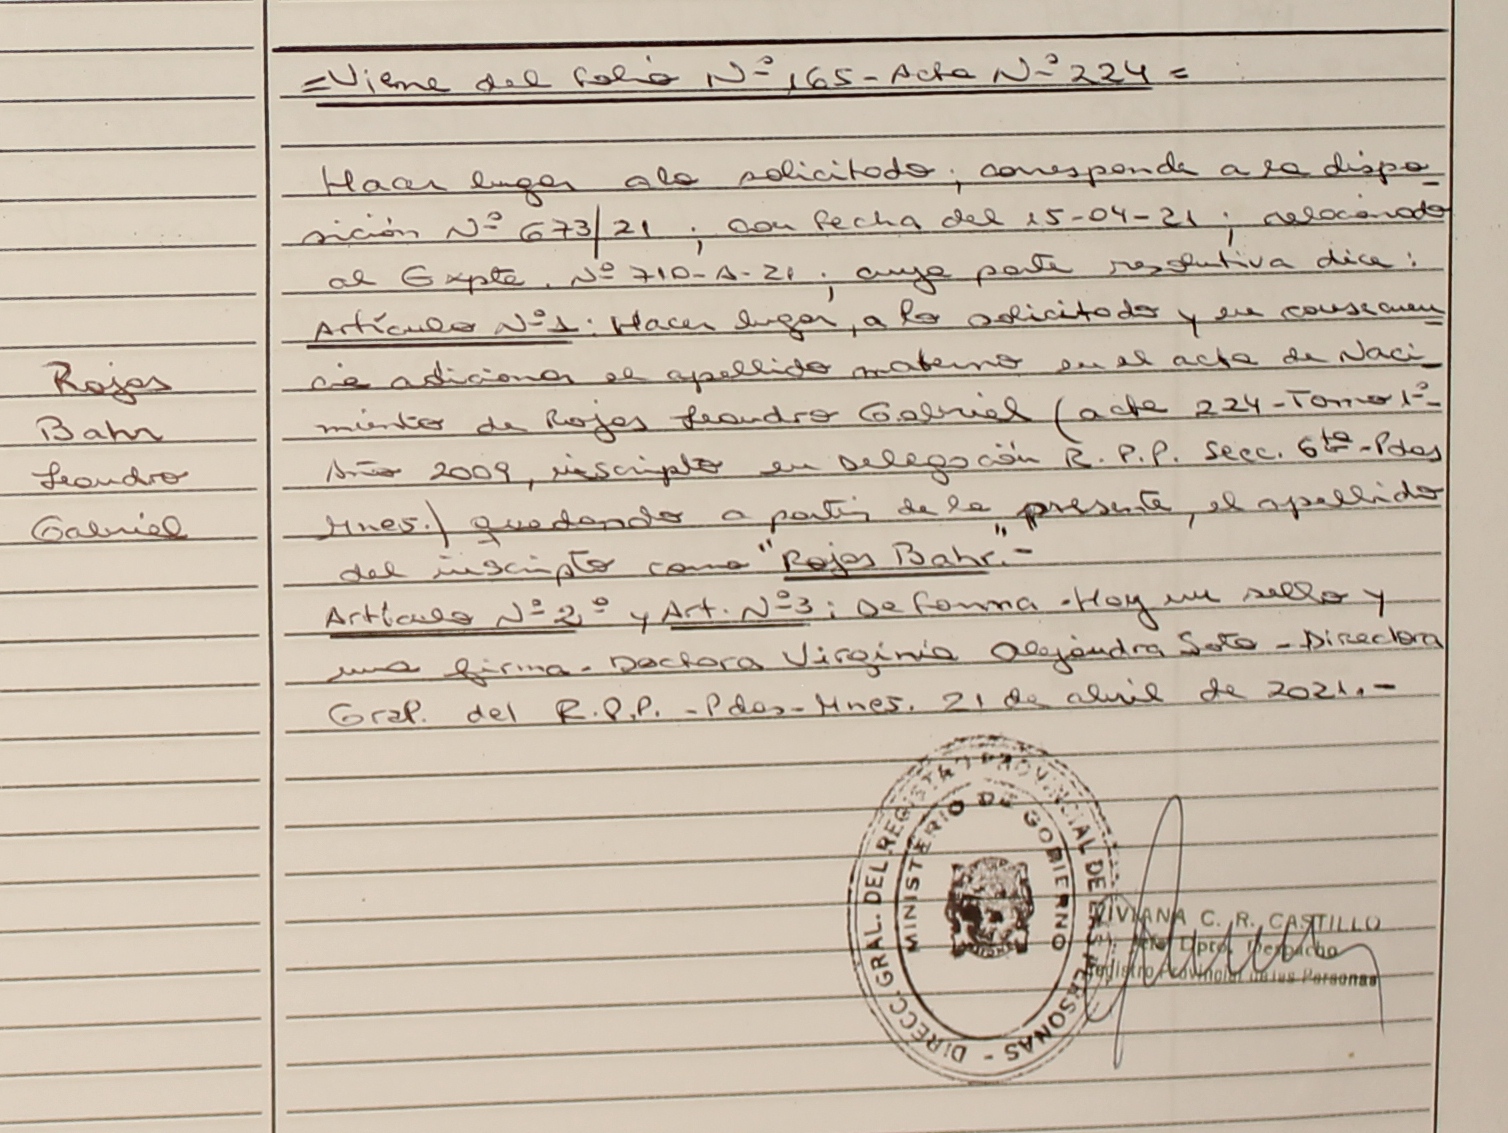 =Viene del folio Nº 165-Acta Nº 224=
Hacer lugar a lo solicitado; corresponde a la dispo-
sición Nº 673/21; con fecha del 15-04-21; relacionado
al Expte. Nº 710-A-21; cuya parte resolutiva dice:
Artículo Nº1: Hacer lugar, a lo solicitado y en consecuen
cia adicionar el apellido materno en el acta de Naci-
miento de Rojas Leandro Gabriel (acta 224-Tomo 1º-
Año 2009, inscripto en Delegación R.P.P. Secc. 6ta-Pdas
Mnes.) quedando a partir de la presente, el apellido
del inscripto como "Rojas Bahr".-
Artículo Nº2º y Art. Nº3: De forma. Hay un sello y
una firma-Doctora Virginia Alejandra Soto-Directora
Gral. del R.P.P.-Pdas-Mnes. 21 de abril de 2021.-
Rojas
Bahr
Leandro
Gabriel
DIRECC. GRAL. DEL REGISTRO PROVINCIAL DE LAS PERSONAS -
MINISTERIO DE GOBIERNO
VIVIANA C. R. CASTILLO
Jefe Dpto. Despacho
Registro Provincial de las Personas